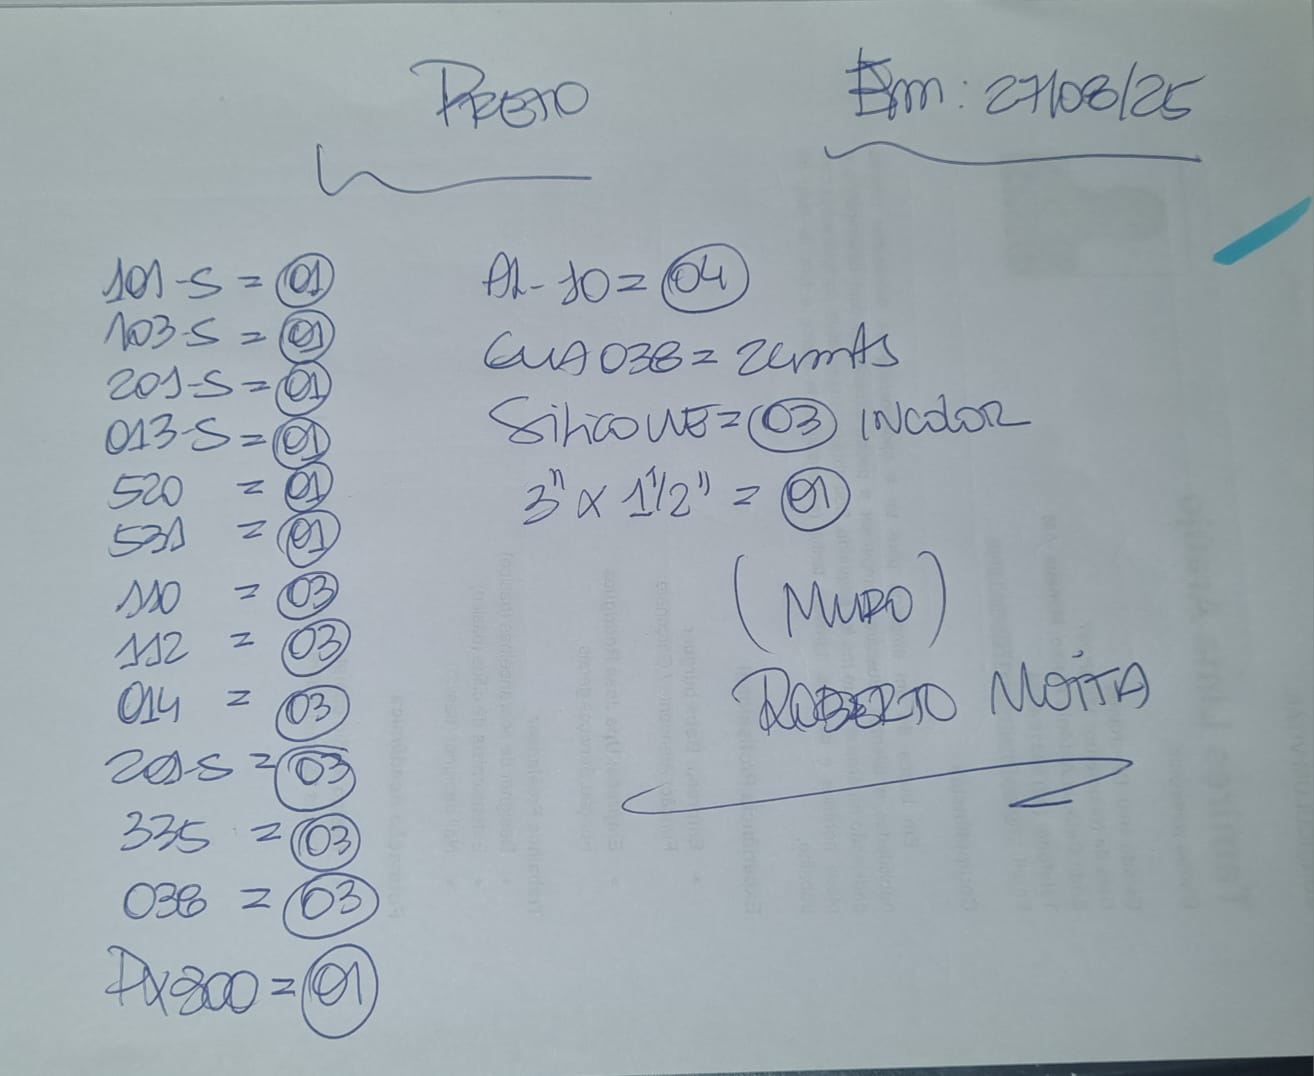 PRETO
Em: 27/08/25
101-S = 01
103-S = 01
201-S = 01
013-S = 01
520 = 01
531 = 01
110 = 03
112 = 03
014 = 03
201-S = 03
335 = 03
038 = 03
PX800 = 01
AL-10 = 04
GUA038 = 24mts
SiliCONE = 03 INColOR
3" x 1 1/2" = 01
(MURO)
ROBERTO MOITA